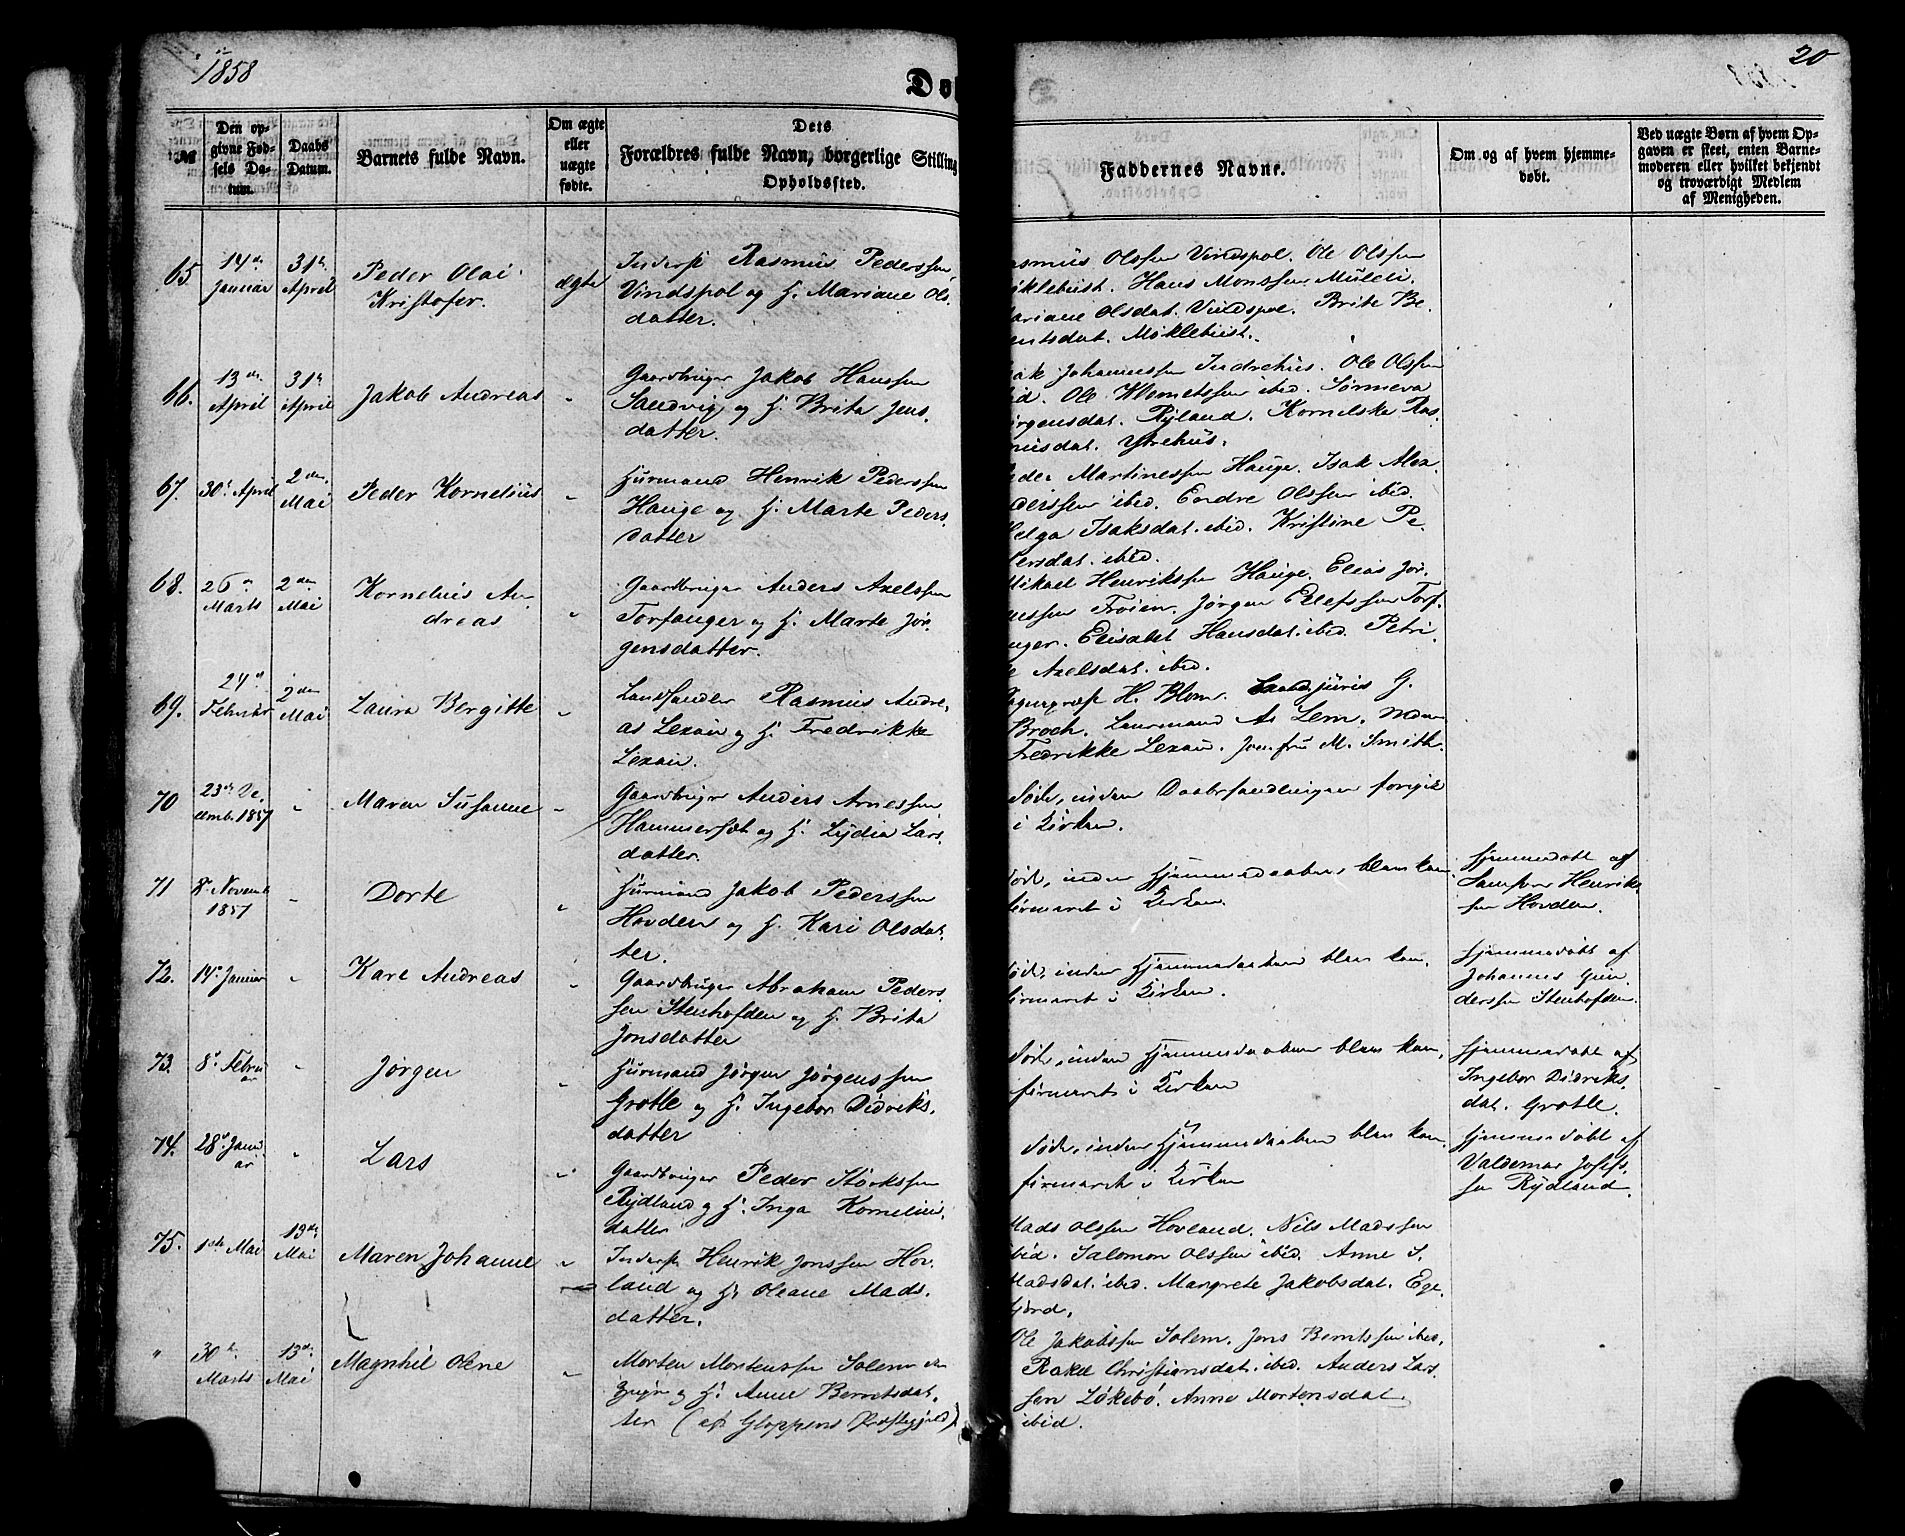 1858
Dø
20
№
Den op-
givne Fød-
sels Da-
tum.
Daabs
Datum.
Barnets fulde Navn.
Om ægte
eller
uægte
fødte.
Dets
Forældres fulde Navn, borgerlige Stilling
Opholdssted.
Faddernes Navne.
Om og af hvem hjemme-
døbt.
Ved uægte Børn af hvem Op-
gaven er skeet, enten Barne-
moderen eller hvilket bekjendt
og troværdigt Medlem
af Menigheden.
65
14de
Januar
31te
April
Peder Olai
Kristofer.
ægte
Inderst Rasmus Pederssen
Vindspol og H. Mariane Ols
datter.
asmus Olssen Vindspol. Ole Olssen
iklebust. Hans Monssen Muleli.
ariane Olsdat. Vindspol. Brite Be
entsdat. Myklebust.
66.
13de
April
31te
April
Jakob Andreas
"
Gaardbruger Jakob Hanssen
Sandvig og H. Brita Jens
datter.
ak Johannessen Indrehus. Ole Olssen
id. Ole Klometssen ibid. Sørineva
ørgensdat. Ryland. Kornelska Ras
musdat. Ytrehus.
67.
30te April
2den
Mai
Peder Kornelius
"
Husmand Henrik Pederssen
Hauge og H. Marte Peders
datter
eder Martinessen Hauge. Isak Alex
derssen ibid. Endre Olssen ibid.
Helga Isaksdat. ibid. Kristine Pe
dersdat. ibid.
68.
26de
Marts
2den
Mai
Kornelius An
dreas
"
Gaardbruger Anders Axelssen
Torfanger og H. Marte Jør
gensdatter.
Mikael Henrikssen Hauge. Elias Jør
nessen Frøien. Jørgen Ellefssen Torf
nger. Elisabet Hansdat. ibid. Petri
e Axelsdat. ibid.
69.
24de
Februar
2den
Mai
Laura Bergitte
"
Landhandler Rasmus Andre
as Lexau og H. Fredrikke
Lexau.
H. Blom. juris G.
Broch. Lensmand A. Lem. Madam
Fredrikke Lexau. Jomfru M. Smith.
70
23de De
cemb. 1857
"
Maren Susanne
"
Gaardbruger Anders Arnessen
Hammerset og H. Lydia Lars
datter.
Døde, inden Daabshandlingen foregik
i Kirken.
71
8de Novemb
1857
"
Dorte
"
Husmand Jakob Pederssen
Hovden og H. Kari Olsdat
ter.
døde, inden Hjemmedaaben blev kon
firmeret i Kirken.
Hjemmedøbt af
Samson Henriks
sen Hovden.
72.
14de Januar
"
Karl Andreas
"
Gaardbruger Abraham Peders
sen Stenhofden og H. Brita
Jonsdatter
død, inden Hjemmedaaben blev kon
firmeret i Kirken.
Hjemmedøbt af
Johannes Gun
derssen Stenhofden.
73.
8de Febru
ar
"
Jørgen
"
Husmand Jørgen Jørgenssen
Grotle og H. Ingebor Didriks
datter
døde, inden Hjemmedaaben blev kon
firmeret i Kirken
Hjemmedøbt af
Ingebor Didriks
dat. Grotle.
74.
28de Janu
ar
"
Lars
"
Gaardbruger Peder Størkssen
Rydland og H. Inga Kornelius
datter
døde, inden Hjemmedaaben blev kon
firmeret i Kirken
Hjemmedøbt af
Valdemar Josefs
sen Rydland.
75.
1ste Mai
13de
Mai
Maren Johanne
"
Inderst Henrik Jonssen Hov
land og H. Oleane Mads
datter.
Mads Olssen Hovland. Nils Madssen
ibid. Salomon Olssen ibid. Anne S.
Madsdat. ibid. Margrete Jakobsdat. Ege
fjord.
"
30te
Marts
13de
Mai
Magnhil Oline
"
Morten Mortenssen Solem
og H. Anne Berntsdat
ter (af Gloppens Præstegjæld)
Ole Jakobssen Solem. Jens Berntssen ibid.
Rakel Christiansdat. ibid. Anders Lars
sen Løkebø. Anne Mortensdat
ibid.